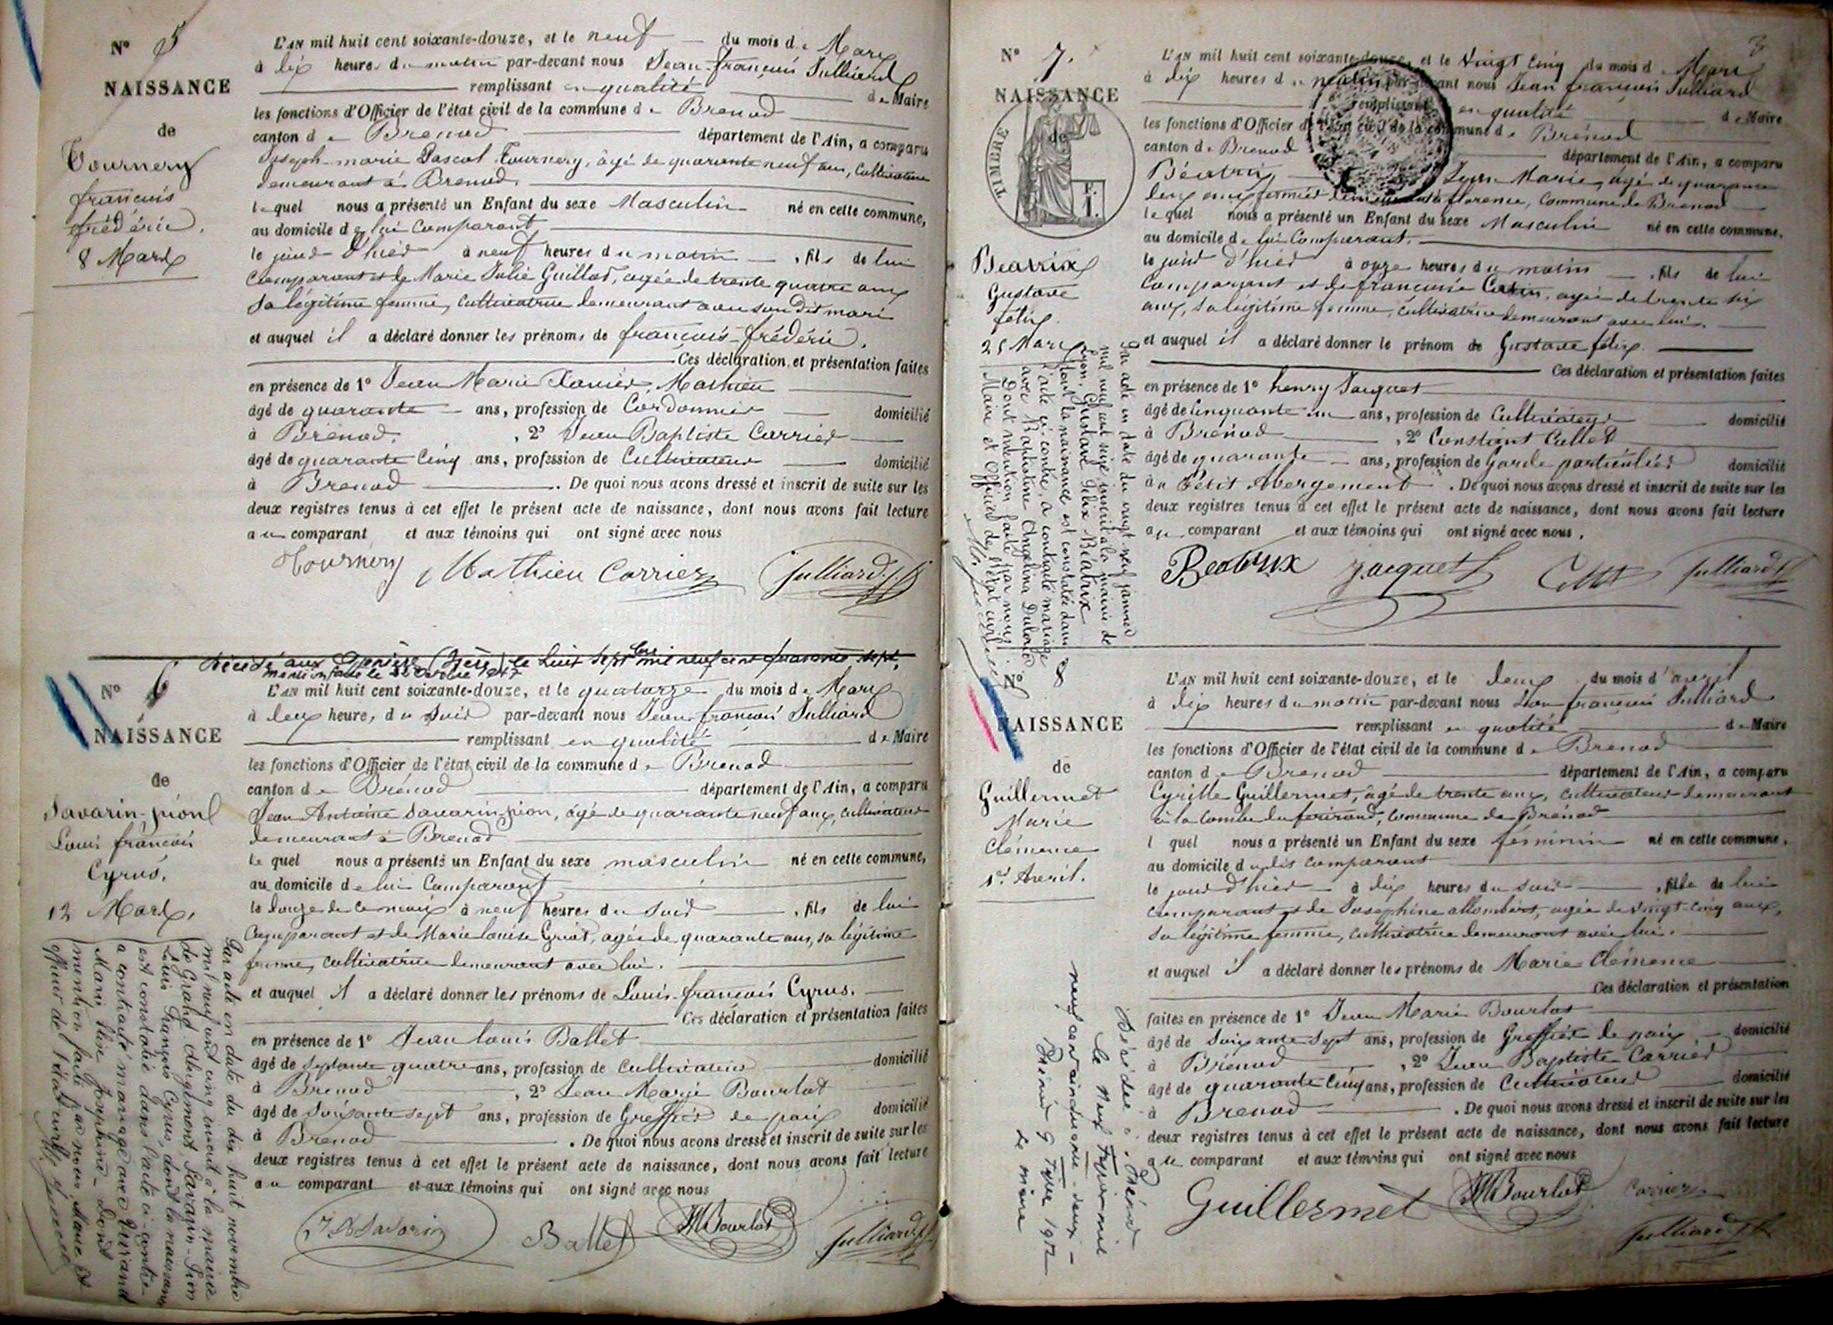 N° 5
NAISSANCE
de
Tournery
françois
frédéric.
8 Mars
L'AN mil huit cent soixante-douze, et le neuf du mois de Mars
à dix heures du matin par-devant nous Jean-françois Julliard
remplissant en qualité de Maire
les fonctions d'Officier de l'état civil de la commune de Brenod
canton de Brenod département de l'Ain, a comparu
Joseph-marie Pascal Tournery, âgé de quarante neuf ans, Cultivateur
demeurant à Brenod
lequel nous a présenté un Enfant du sexe Masculin né en cette commune,
au domicile de lui Comparant
le jour d'hier à neuf heures du matin, fils de lui
Comparant et de Marie Julie Guillot, agée de trente quatre ans
Sa légitime femme, cultivatrice demeurant avec son dit mari
et auquel il a déclaré donner les prénoms de françois-frédéric.
Ces déclaration et présentation faites
en présence de 1° Jean Marie Xavier Mathieu
âgé de quarante ans, profession de Cordonnier domicilié
à Brénod, 2° Jean Baptiste Carrier
âgé de quarante Cinq ans, profession de Cultivateur domicilié
à Brenod. De quoi nous avons dressé et inscrit de suite sur les
deux registres tenus à cet effet le présent acte de naissance, dont nous avons fait lecture
au comparant et aux témoins qui ont signé avec nous
Tournery Mathieu Carrier Julliard
le huit sept bre mil neuf cent quarante sept.
N° 6
NAISSANCE
de
Savarin-pion
Louis françois
Cyrus.
12 Mars.
L'AN mil huit cent soixante-douze, et le quatorze du mois de Mars
à deux heures du Soir par-devant nous Jean-françois Julliard
remplissant en qualité de Maire
les fonctions d'Officier de l'état civil de la commune de Brenod
canton de Brénod département de l'Ain, a comparu
Jean Antoine Savarin-pion, âgé de quarante neuf ans, cultivateur
demeurant à Brenod
lequel nous a présenté un Enfant du sexe masculin né en cette commune,
au domicile de lui Comparant
le douze de ce mois à neuf heures du soir, fils de lui
Comparant et de Marie louise Griot, agée de quarante ans, sa légitime
femme, cultivatrice demeurant avec lui.
et auquel il a déclaré donner les prénoms de Louis-françois Cyrus.
Ces déclaration et présentation faites
en présence de 1° Jean louis Ballet
âgé de Septante quatre ans, profession de Cultivateur domicilié
à Brenod, 2° Jean Marie Bourlot
âgé de Soixante sept ans, profession de Greffier de paix domicilié
à Brenod. De quoi nous avons dressé et inscrit de suite sur les
deux registres tenus à cet effet le présent acte de naissance, dont nous avons fait lecture
au comparant et aux témoins qui ont signé avec nous
Savarin Ballet JM Bourlot Julliard
Par acte en date du dix huit novembre
mil neuf cent cinq inscrit à la mairie
de Grand Abergement Savarin-Pion
Louis François Cyrus, dont la naissance
est constatée dans l'acte ci-contre
a contracté mariage avec
Marie Josephine. Dont
mention faite par nous, Maire et
officier de l'état civil
3
N° 7.
NAISSANCE
de
TIMBRE
Béatrix
Gustave
félix.
25 Mars
L'AN mil huit cent soixante-douze, et le Vingt Cinq du mois de Mars
à dix heures du matin par-devant nous Jean françois Julliard
remplissant en qualité de Maire
les fonctions d'Officier de l'état civil de la commune de Brénod
canton de Brenod département de l'Ain, a comparu
Béatrix Jean Marie, agé de quarante
deux ans, fermier demeurant à florence, Commune de Brenod
lequel nous a présenté un Enfant du sexe Masculin né en cette commune,
au domicile de lui Comparant.
le jour d'hier à onze heures du matin, fils de lui
Comparant et de francoise, agée de trente six
ans, sa légitime femme, cultivatrice demeurant avec lui.
et auquel il a déclaré donner le prénom de Gustave félix.
Ces déclaration et présentation faites
en présence de 1° henry Jacquet
âgé de Cinquante un ans, profession de Cultivateur domicilié
à Brénod, 2° Constant Collet
âgé de quarante ans, profession de Garde particulier domicilié
au Petit Abergement. De quoi nous avons dressé et inscrit de suite sur les
deux registres tenus à cet effet le présent acte de naissance, dont nous avons fait lecture
au comparant et aux témoins qui ont signé avec nous.
Beatrix Jacquet Collet Julliard
Par acte en date du vingt neuf janvier
mil neuf cent seize inscrit à la mairie de
Lyon, Gustave Félix Béatrix
dont la naissance est constatée dans
l'acte ci-contre, a contracté mariage
avec Baptistine Angelina
Dont mention faite par nous
Maire et Officier de l'état civil
N° 8
NAISSANCE
de
Guillermet
Marie
Clémence
1er Avril.
L'AN mil huit cent soixante-douze, et le deux du mois d'avril
à dix heures du matin par-devant nous Jean françois Julliard
remplissant en qualité de Maire
les fonctions d'Officier de l'état civil de la commune de Brenod
canton de Brenod département de l'Ain, a comparu
Cyrille Guillermet, âgé de trente ans, cultivateur demeurant
à la Combe du, commune de Brénod
lequel nous a présenté un Enfant du sexe féminin né en cette commune,
au domicile du dit comparant
le jour d'hier à dix heures du soir, fille de lui
comparant et de Josephine allombert, agée de vingt-cinq ans,
Sa légitime femme, cultivatrice demeurant avec lui.
et auquel il a déclaré donner les prénoms de Marie Clémence
Ces déclaration et présentation
faites en présence de 1° Jean Marie Bourlot
âgé de Soixante Sept ans, profession de Greffier de paix, domicilié
à Brénod, 2° Jean Baptiste Carrier
âgé de quarante Cinq ans, profession de Cultivateur domicilié
à Brenod. De quoi nous avons dressé et inscrit de suite sur les
deux registres tenus à cet effet le présent acte de naissance, dont nous avons fait lecture
au comparant et aux témoins qui ont signé avec nous
Guillermet JM Bourlot Carrier
Julliard
Décédée à Brénod
le neuf Février mil
neuf cent cinquante-deux
Brénod 9 1952
Le maire